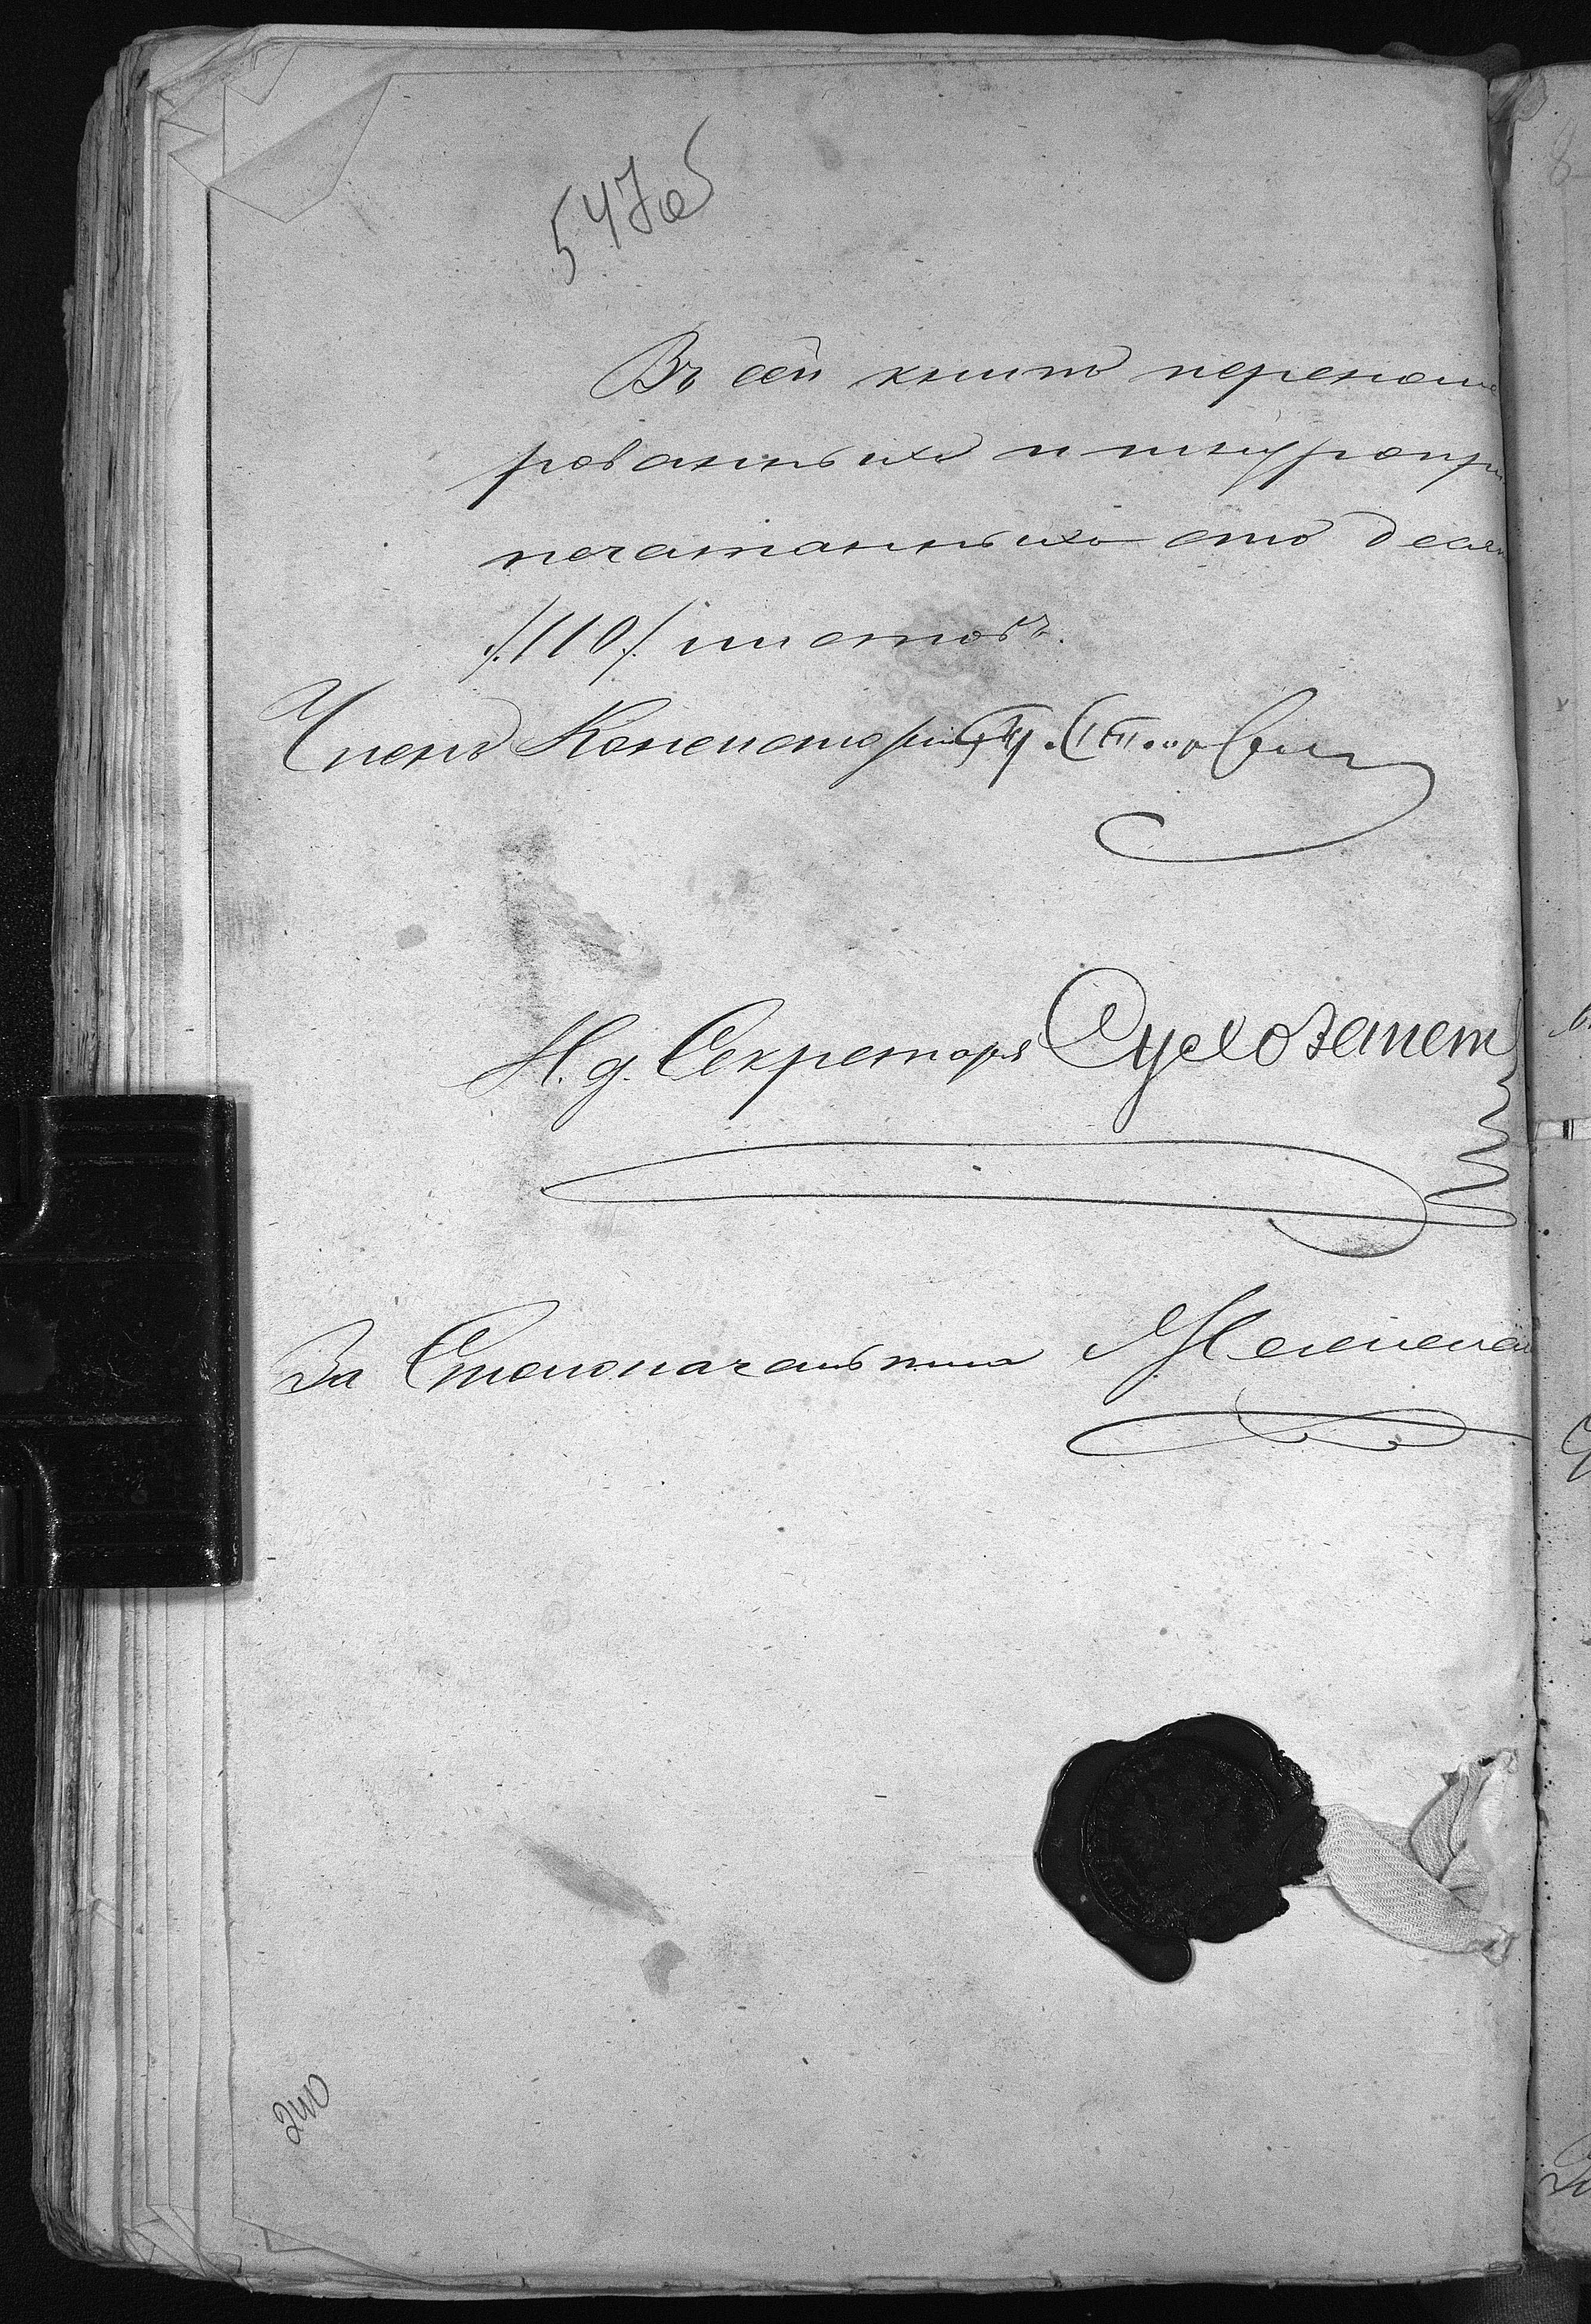 547об
Въ сей книгѣ перенуме
рованныхъ и шнуропри
печатанныхъ сто десять
/:110:/ листовъ.
Членъ Консисторіи
И. д. Секретаря Сухозанет
За Столоначальника
240